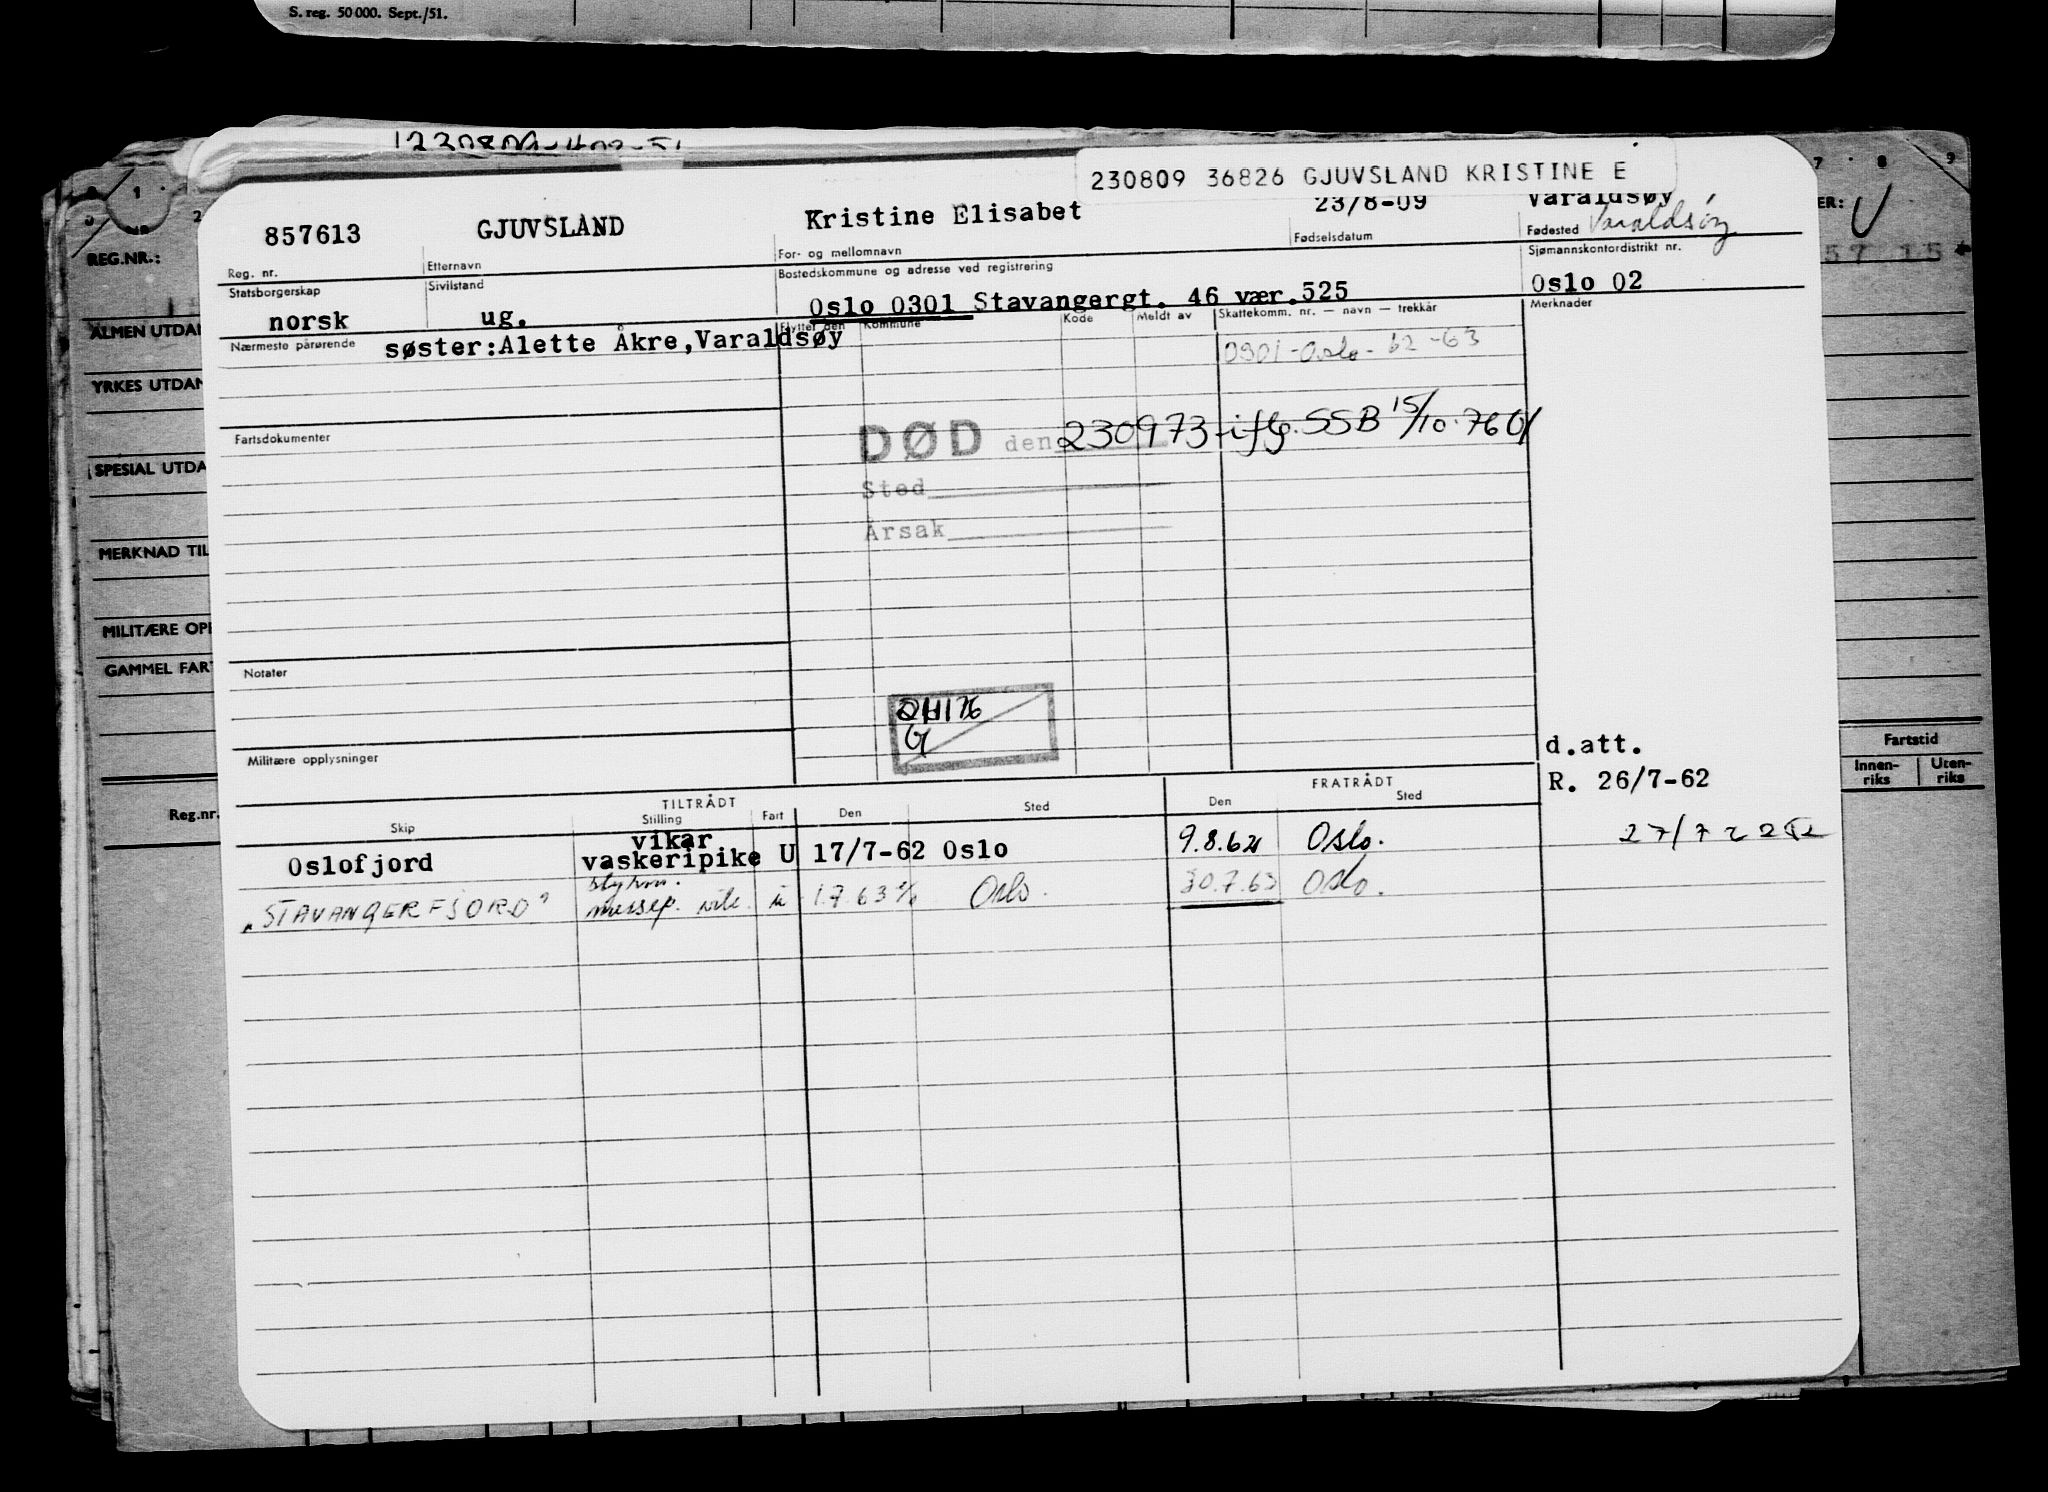 S. reg. 50 000. Sept./51.
230809 36826 GJUVSLAND KRISTINE E
857613 GJUVSLAND Kristine Elisabet 23/8-09 Varaldsøy
Varaldsøy
Reg. nr. Etternavn For- og mellomnavn Fødselsdatum Fødested
Statsborgerskap Sivilstand Bostedskommune og adresse ved registrering Sjømannskontordistrikt nr.
norsk ug. Oslo 0301 Stavangergt. 46 vær.525 Oslo 02
Nærmeste pårørende søster:Alette Åkre,Varaldsøy Flyttet den Kommune Kode Meldt av Skattekomm. nr. — navn — trekkår Merknader
0301-Oslo-62-63
Fartsdokumenter
DØD den 230973 iflg. SSB 15/10.76
Sted
Årsak
Notater
Militære opplysninger
d.att.
R. 26/7-62
TILTRÅDT FRATRÅDT
Skip Stilling Fart Den Sted Den Sted
Oslofjord vikar vaskeripike U 17/7-62 Oslo 9.8.62 Oslo.
"STAVANGERFJORD" messep. u 1.7.63 Oslo. 30.7.63 Oslo.
REG.NR.:
ALMEN UTDA
YRKES UTDAN
SPESIAL UTDA
MERKNAD TIL
MILITÆRE OP
GAMMEL FAR
Reg.nr.
7 8 9
ER:
Fartstid
Innen-riks Uten-riks